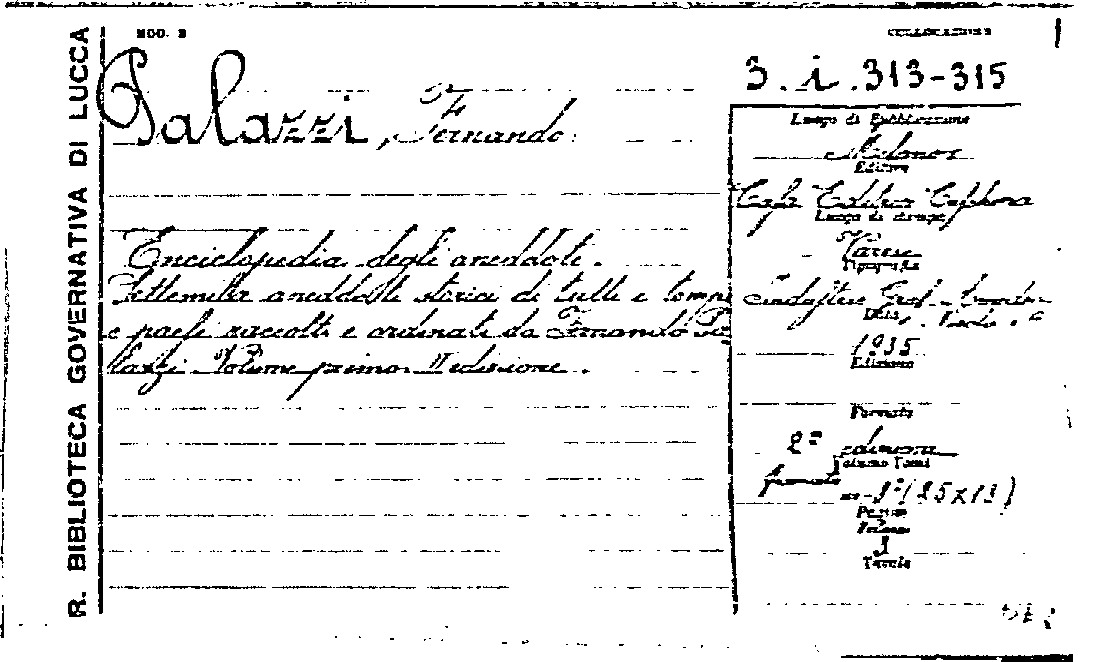 R. BIBLIOTECA GOVERNATIVA DI LUCCA
MOD. B
COLLOCAZIONE
3. i. 313-315
Palazzi, Fernando.
Enciclopedia degli aneddoti.
Settemila aneddoti storici di tutti i tempi
e paesi raccolti e ordinati da Fernando Pa
lazzi. Volume primo. II edizione.
Luogo di Pubblicazione
Milano
Editore
Casa Editrice Ceschina
Luogo di stampa
Varese
Tipografia
Industrie Graf.
Data
1935
Edizione
Formato
2ª edizione
formato
in-8°(25x18)
Pagine
Volume
3
Tavole